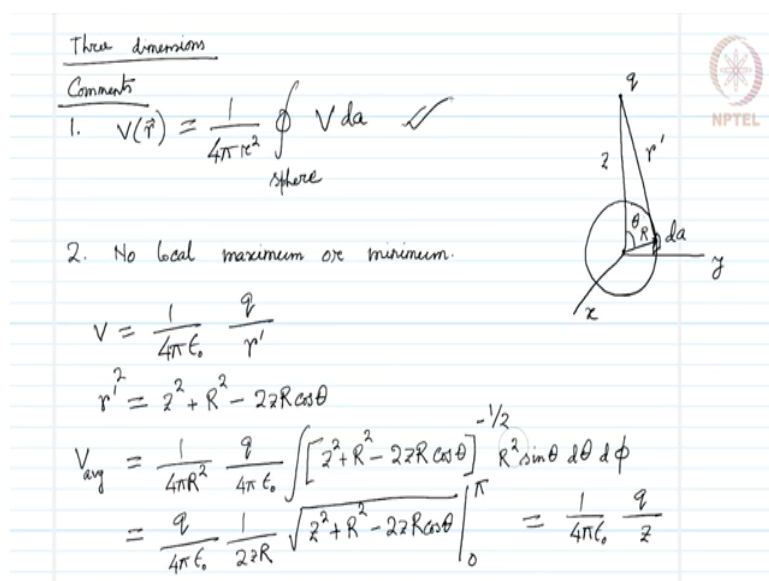 Three dimensions
Comments
1. V(r⃗) = 1/4πr² ∮ V da ✓
sphere
2. No local maximum or minimum.
V = 1/4πε₀ q/r'
r'² = z² + R² - 2zR cosθ
V_avg = 1/4πR² q/4πε₀ ∫ [z² + R² - 2zR cosθ]^(-1/2) R² sinθ dθ dφ
= q/4πε₀ 1/2zR √(z² + R² - 2zR cosθ) |₀^π = 1/4πε₀ q/z
NPTEL
q
z r'
θ R da
y
x